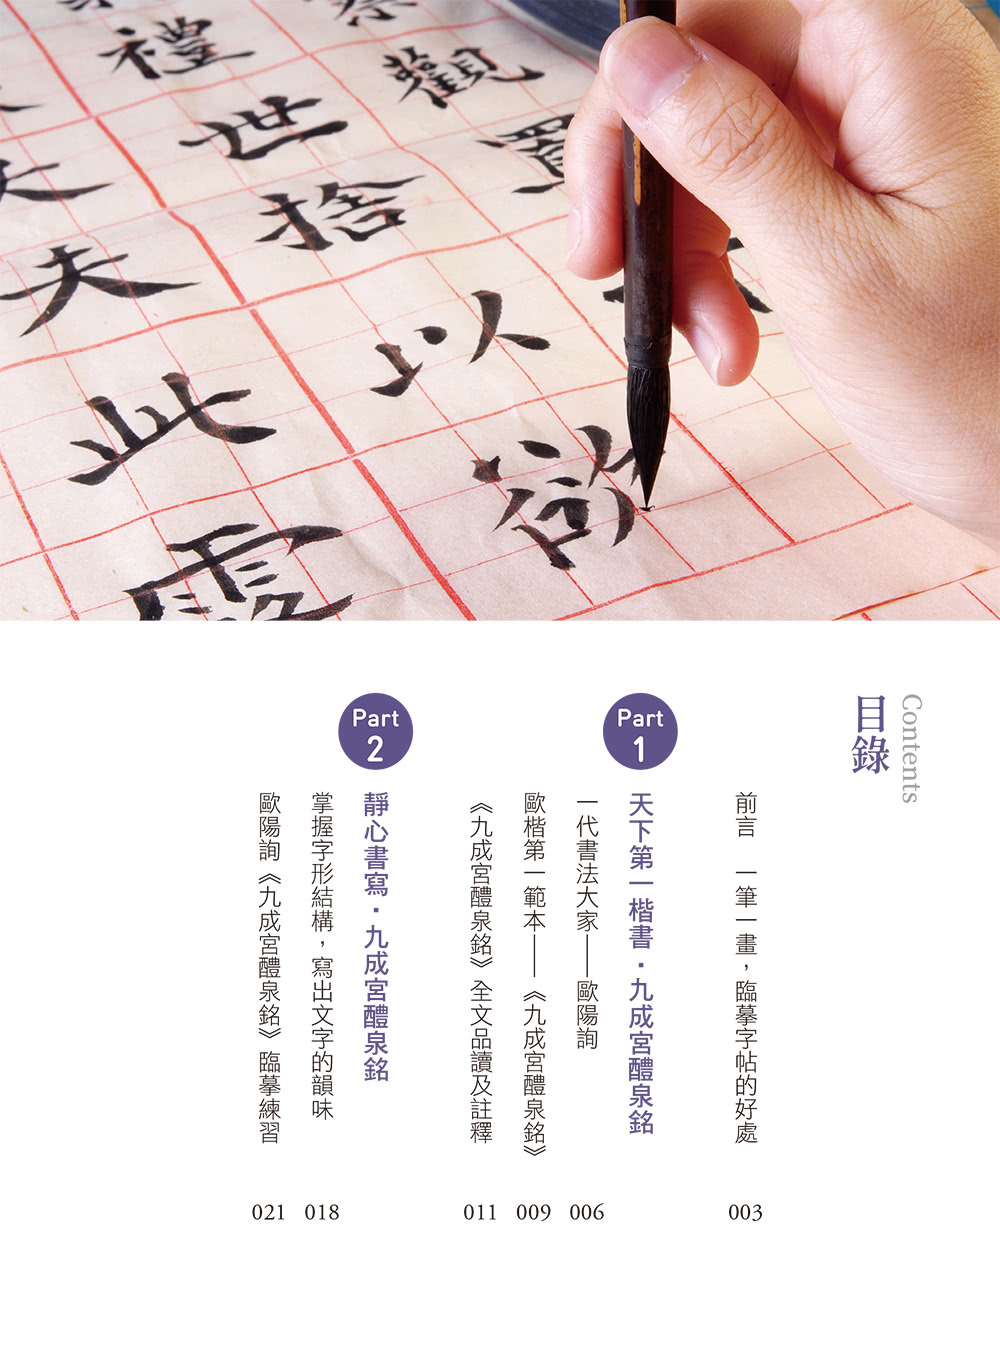 禮
觀
世
捨
夫
以
此
欲
目錄
Contents
前言 一筆一畫，臨摹字帖的好處 003
Part 1
天下第一楷書．九成宮醴泉銘
一代書法大家——歐陽詢 006
歐楷第一範本——《九成宮醴泉銘》 009
《九成宮醴泉銘》全文品讀及註釋 011
Part 2
靜心書寫．九成宮醴泉銘
掌握字形結構，寫出文字的韻味 018
歐陽詢《九成宮醴泉銘》臨摹練習 021